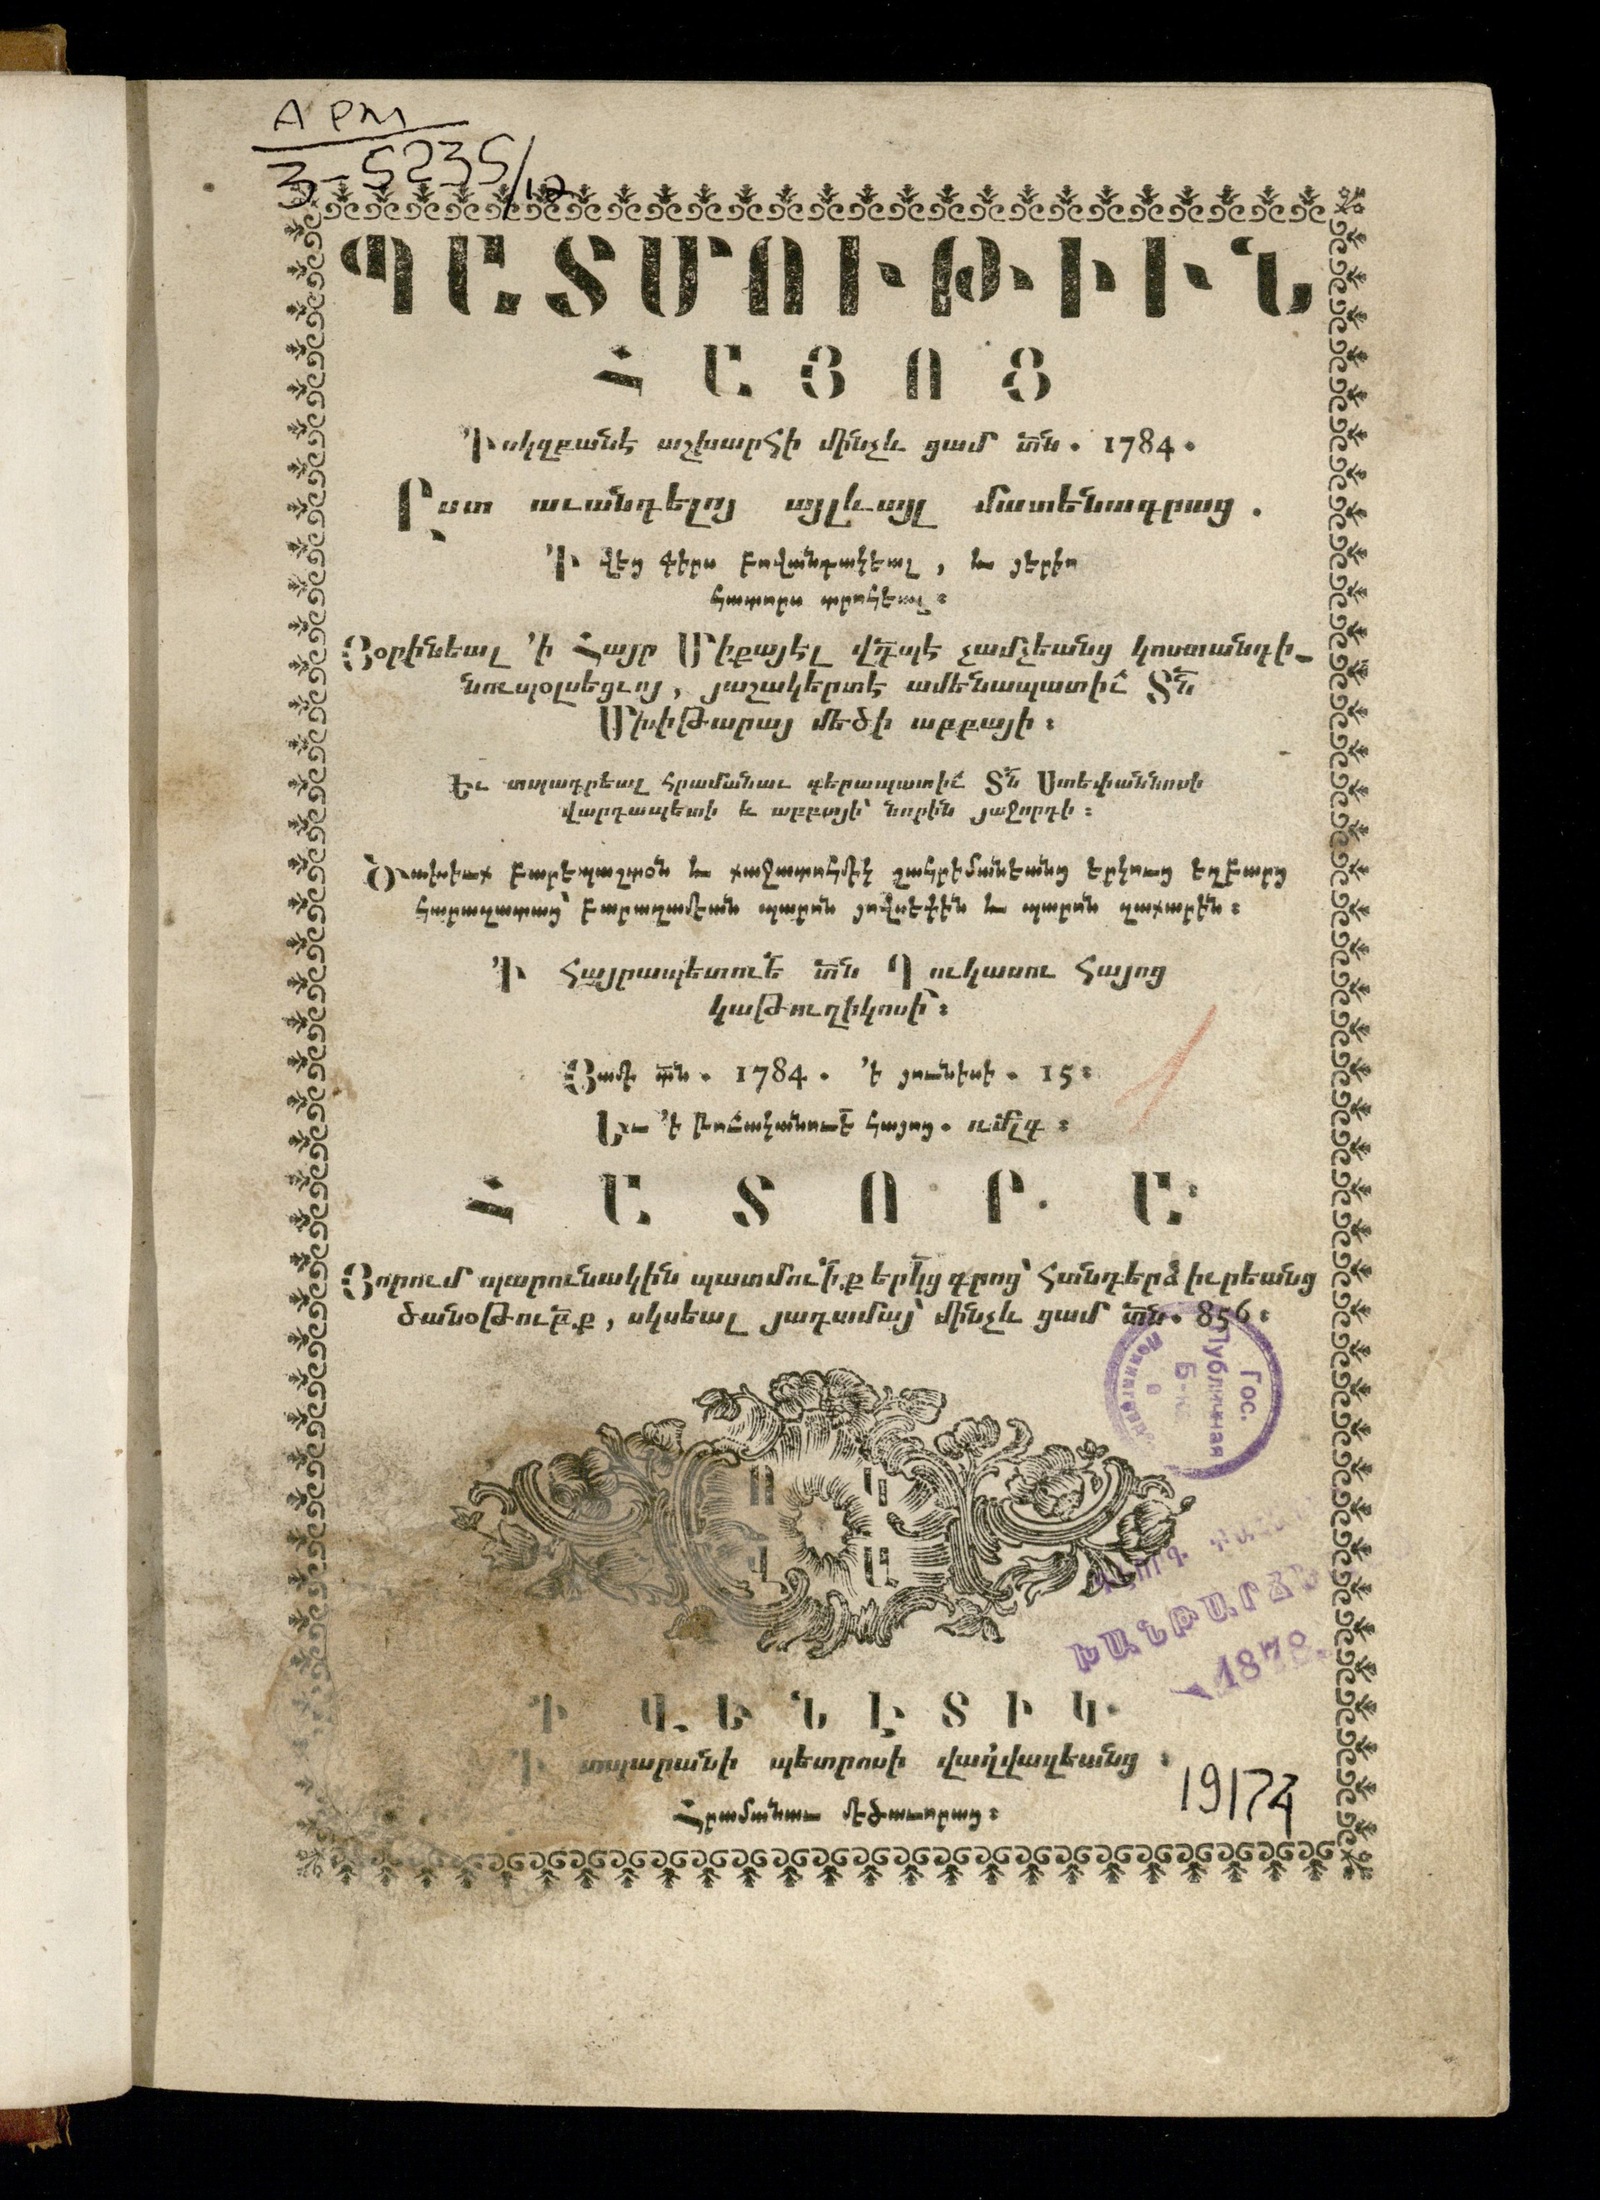 АРМ
3-5235/12
ՊԱՏՄՈՒԹԻԻՆ
ՀԱՅՈՑ
՚Ի սկզբանէ աշխարհի մինչև ցամ տն. 1784.
Ըստ աւանդելոյ այլևայլ մատենագրաց.
՚Ի վեց գիրս բովանդակեալ, և յերիս
հատորս տրոհեալ։
Յօրինեալ ՚ի Հայր Միքայէլ վդպէ չամչեանց կոստանդի-
նուպօլսեցւոյ, յաշակերտէ ամենապատիւ Տն
Մխիթարայ մեծի աբբայի։
Եւ տպագրեալ հրամանաւ գերապատիւ Տն Ստեփաննոսի
վարդապետի և աբբայի՝ նորին յաջորդի։
Ծախիւք բարեպաշտօն և քաջատոհմիկ շահրիմանեանց երկուց եղբարց
հարազատաց՝ բարաղամեան պարոն յովսեփին և պարոն ղազարին։
՚Ի Հայրապետուե տն Ղուկասու Հայոց
կաթուղիկոսի՝։
Յամի տն. 1784. ՚ի յունիսի. 15։
Եւ ՚ի թուականուե հայոց. ռմլգ։
ՀԱՏՈՐ. Ա։
Յորում պարունակին պատմուիք երկց գրոց՝ հանդերձ իւրեանց
ծանօթուբք, սկսեալ յադամայ՝ մինչև ցամ տն. 856։
Ո Կ
Վ Ա
Гос.
Публичная
Б-ка
в
Ленинграде
ԽԱՆԹԱՐՃ
1878.
՚Ի ՎԵՆԷՏԻԿ.
՚Ի տպարանի պետրոսի վաղվազեանց։
Հրամանաւ մեծաւորաց։
19174